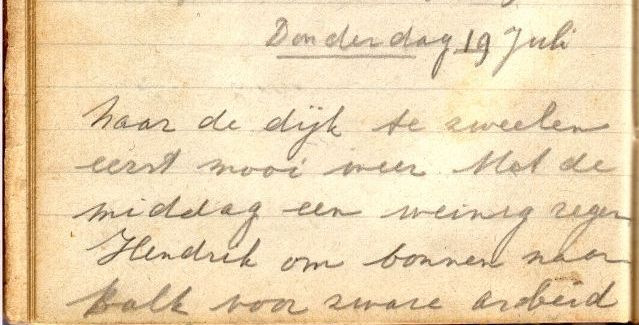 Donderdag 19 Juli
Naar de dijk te zweelen
eerst mooi weer Met de
middag een weinig regen
Hendrik om bonnen naar
Balk voor zware arbeid